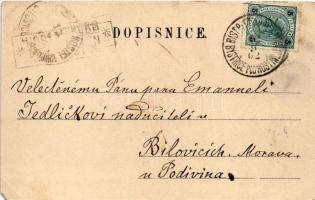 DOPISNICE.
Velectěnému Pánu panu Emanueli
Jedličkovi nadučiteli v
Bílovicích. Morava.
u Podivína